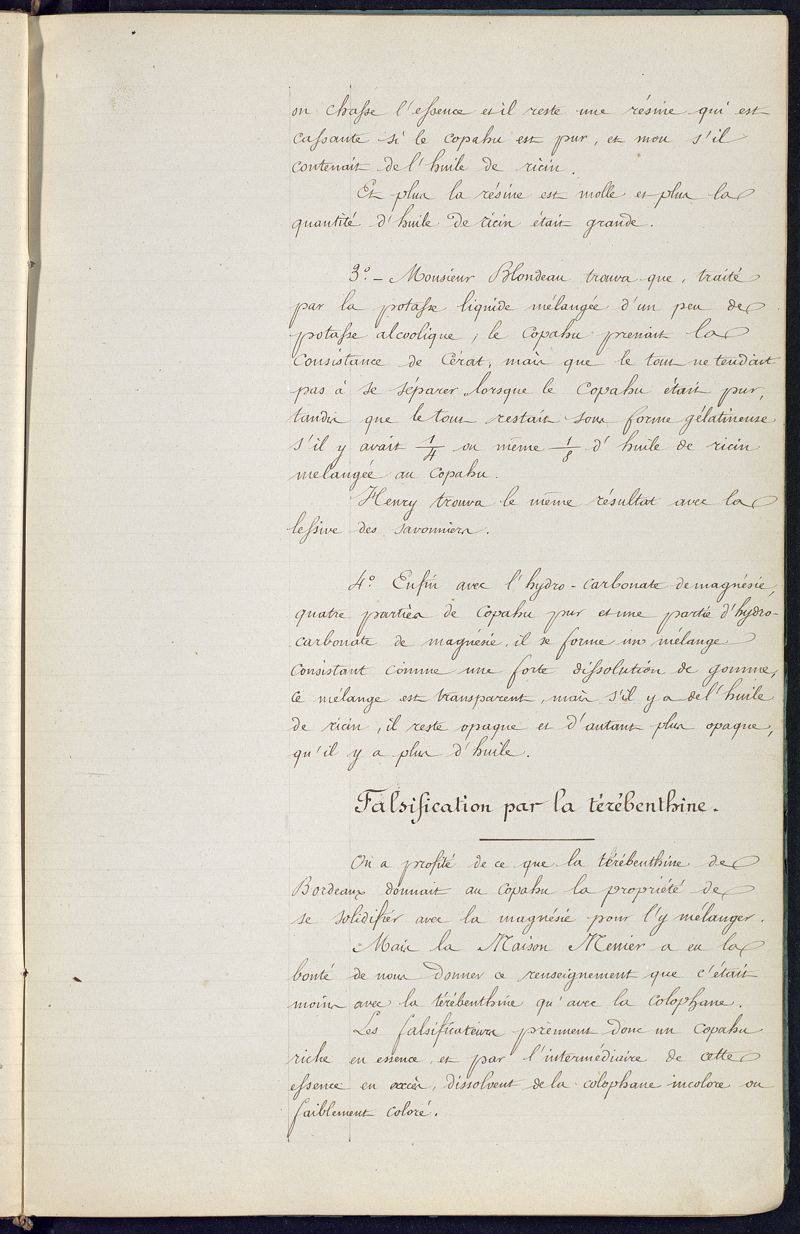 on chasse l'essence et il reste une résine qui est
cassante si le copahu est pur, et mou s'il
contenait de l'huile de ricin.
Et plus la résine est molle et plus la
quantité d'huile de ricin était grande.
3º - Monsieur Blondeau trouva que, traité
par la potasse liquide mélangée d'un peu de
potasse alcoolique, le Copahu prenait la
consistance de Cérat, mais que le tout ne tendait
pas à se séparer lorsque le Copahu était pur,
tandis que le tout restait sous forme gélatineuse
s'il y avait 1/4 ou même 1/8 d'huile de ricin
melangée au Copahu.
Henry trouva le même résultat avec la
lessive des savonniers.
4º Enfin avec l'hydro-carbonate de magnésie,
quatre parties de Copahu pur et une partie d'hydro-
carbonate de magnésie, il se forme un mélange
consistant comme une forte dissolution de gomme,
ce mélange est transparent, mais s'il y a de l'huile
de ricin, il reste opaque et d'autant plus opaque,
qu'il y a plus d'huile.
Falsification par la térébenthine.
On a profité de ce que la térébenthine de
Bordeaux donnait au Copahu la propriété de
se solidifier avec la magnésie pour l'y mélanger.
Mais la Maison Menier a eu la
bonté de nous donner ce renseignement que c'était
moins avec la térébenthine qu'avec la colophane.
Les falsificateurs prennent donc un Copahu
riche en essence et par l'intermédiaire de cette
essence en excès, dissolvent de la colophane incolore ou
faiblement coloré.